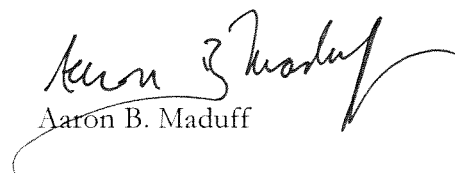 Aaron B Maduff
Aaron B. Maduff